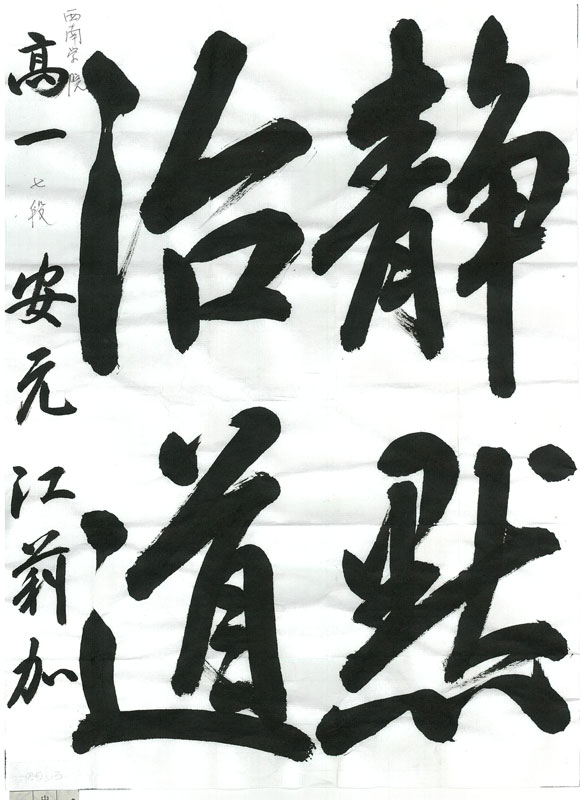 静黙
治道
西南学院
高一 七段 安元 江莉加